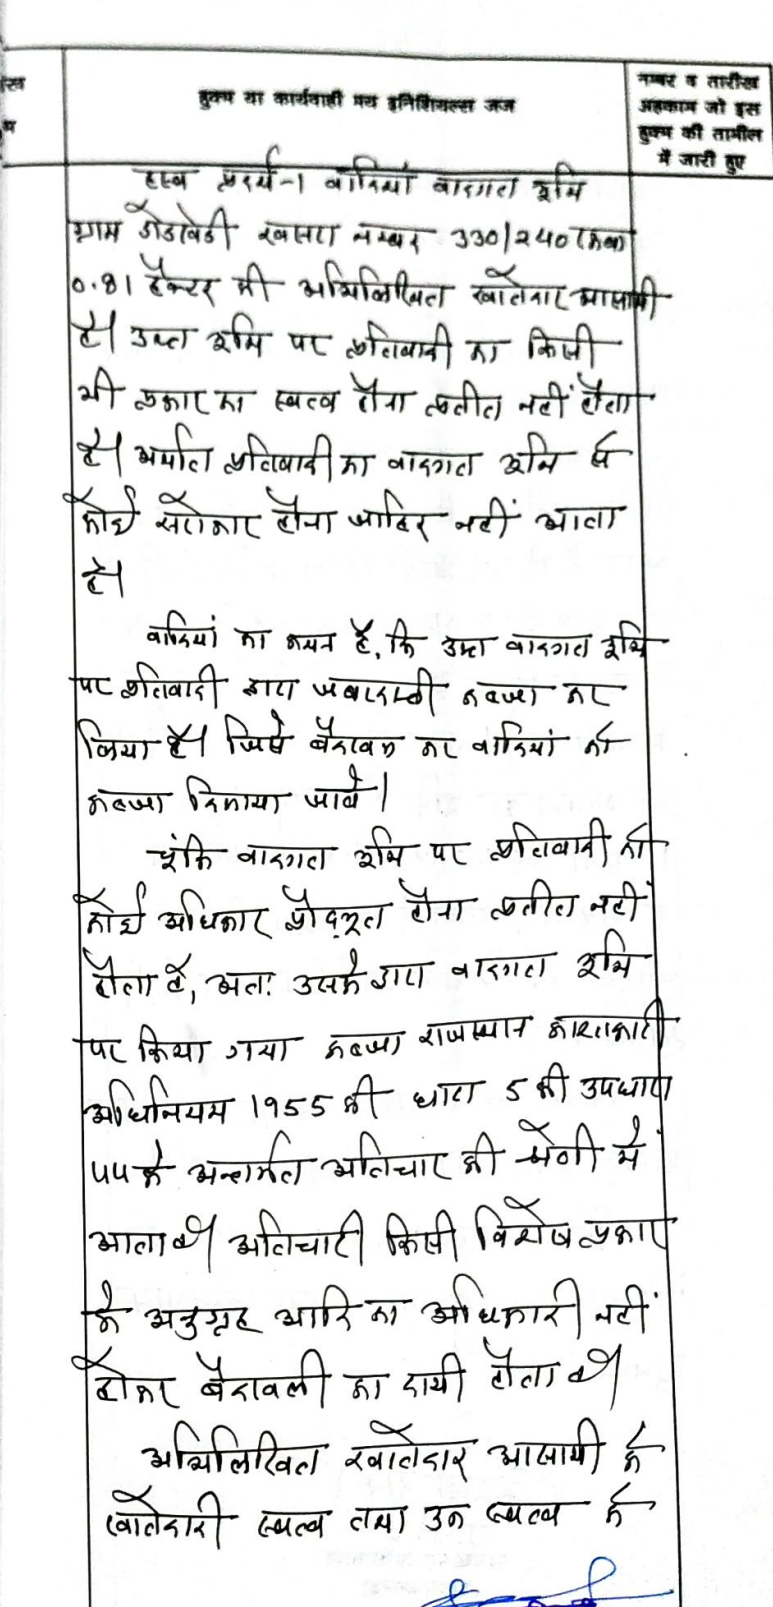 हुक्म या कार्यवाही मय इनिशियल्स जज
नम्बर व तारीख
अहकाम जो इस
हुक्म की तामील
में जारी हुए
हस्ब प्रदर्श-1 वादिया वादगत भूमि
ग्राम डोडावेडी खसरा नम्बर 330/240 रकबा
0.81 हैक्टर की अभिलिखित खातेदार आसामी
है। उक्त भूमि पर प्रतिवादी का किसी
भी प्रकार का स्वत्व होना प्रतीत नहीं होता
है। अर्थात प्रतिवादी का वादगत भूमि से
कोई सरोकार होना जाहिर नहीं आता
है।
वादियां का कथन है, कि उक्त वादगत भूमि
पर प्रतिवादी द्वारा जबरदस्ती कब्जा कर
लिया है। जिसे बेदखल कर वादियां को
कब्जा दिलाया जावे।
चूंकि वादगत भूमि पर प्रतिवादी को
कोई अधिकार प्रोद्भूत होना प्रतीत नहीं
होता है, अतः उसके द्वारा वादगत भूमि
पर किया गया कब्जा राजस्थान काश्तकारी
अधिनियम 1955 की धारा 5 की उपधारा
44 के अन्तर्गत अतिचार की श्रेणी में
आता है। अतिचारी किसी विशेष प्रकार
के अनुग्रह आदि का अधिकारी नहीं
होकर बेदखली का दायी होता है।
अभिलिखित खातेदार आसामी के
खातेदारी स्वत्व तथा उन स्वत्व के